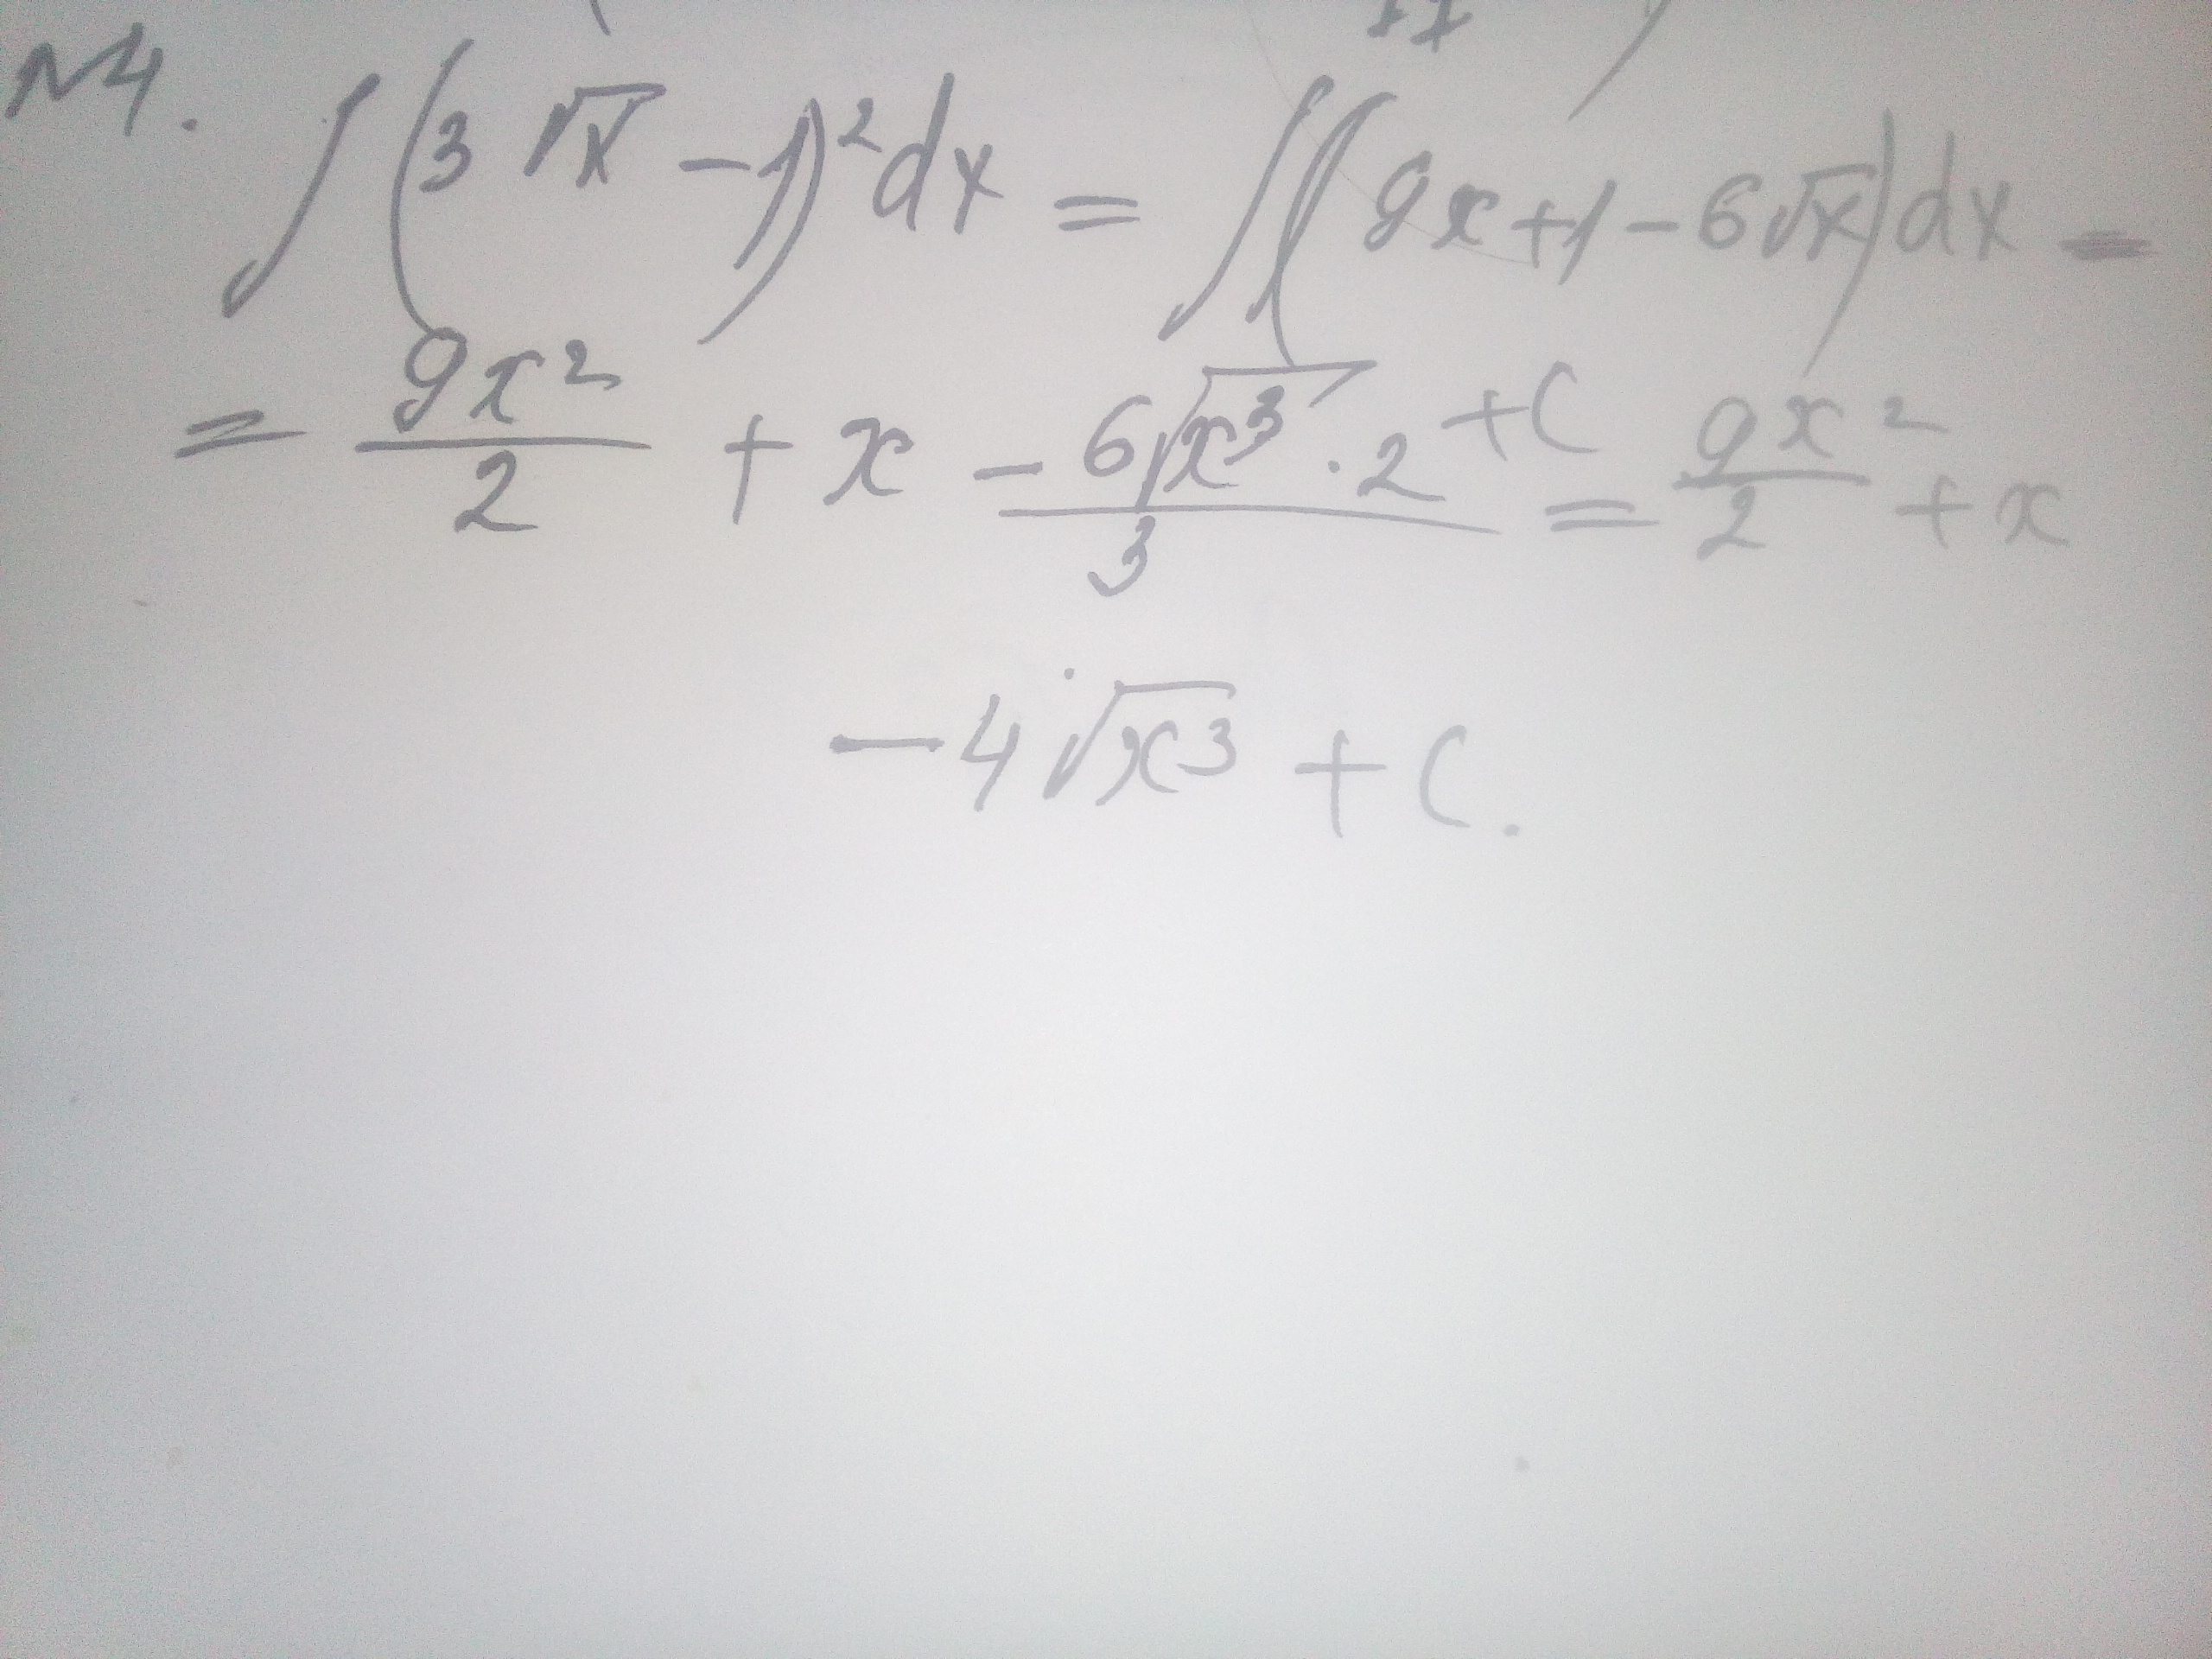 №4. ∫(3√x -1)²dx = ∫(9x+1-6√x)dx =
= 9x²/2 + x - 6√x³·2/3 + C = 9x²/2 + x
-4√x³ + C.